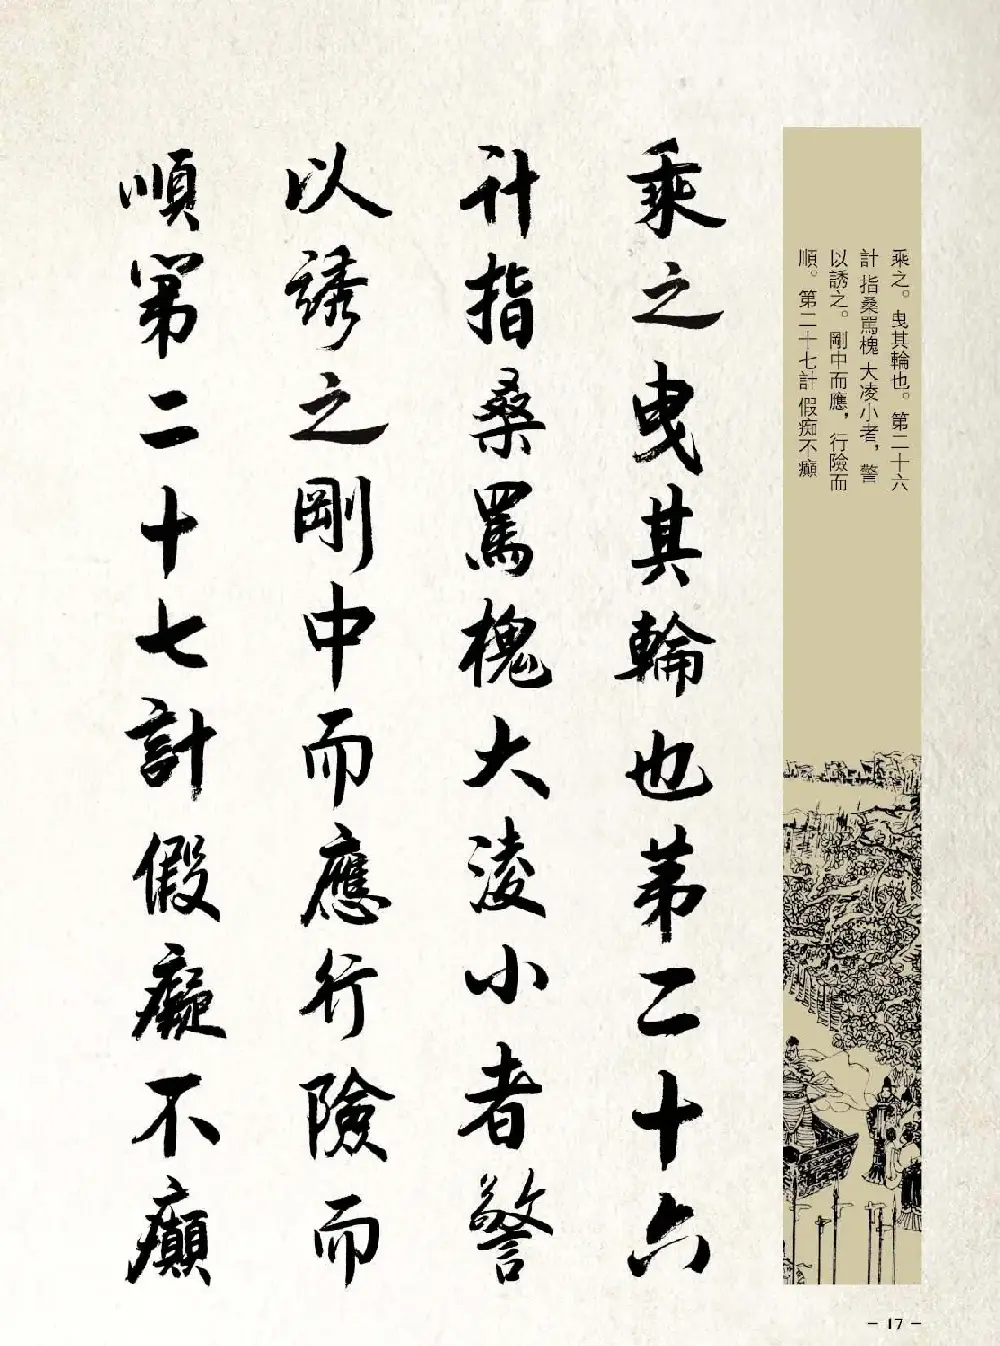 乘之。曳其輪也。第二十六
計 指桑駡槐 大凌小者，警
以誘之。剛中而應，行險而
順。第二十七計 假痴不癲
乘之曳其輪也苐二十六
计指桑駡槐大淩小者警
以誘之剛中而應行險而
順第二十七計假癡不癲
- 17 -